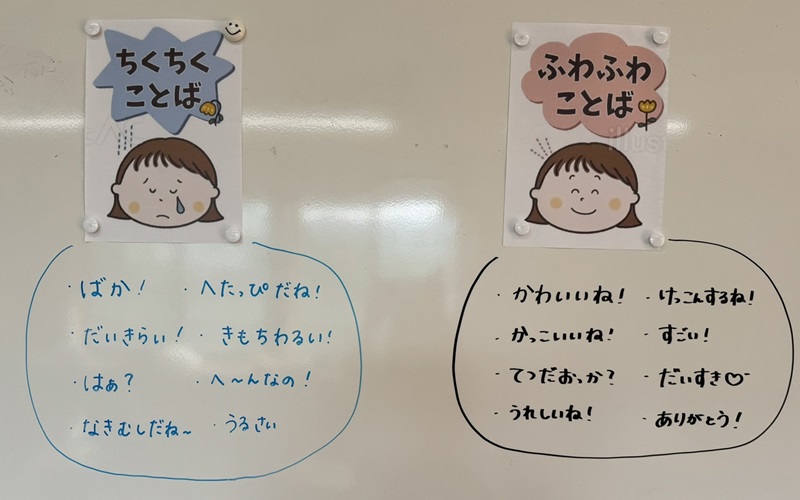 ちくちく
ことば
・ばか!
・へたっぴだね!
・だいきらい!
・きもちわるい!
・はぁ?
・へ〜んなの!
・なきむしだね〜
・うるさい
ふわふわ
ことば
・かわいいね!
・けっこんするね!
・かっこいいね!
・すごい!
・てつだおっか?
・だいすき♡
・うれしいね!
・ありがとう!